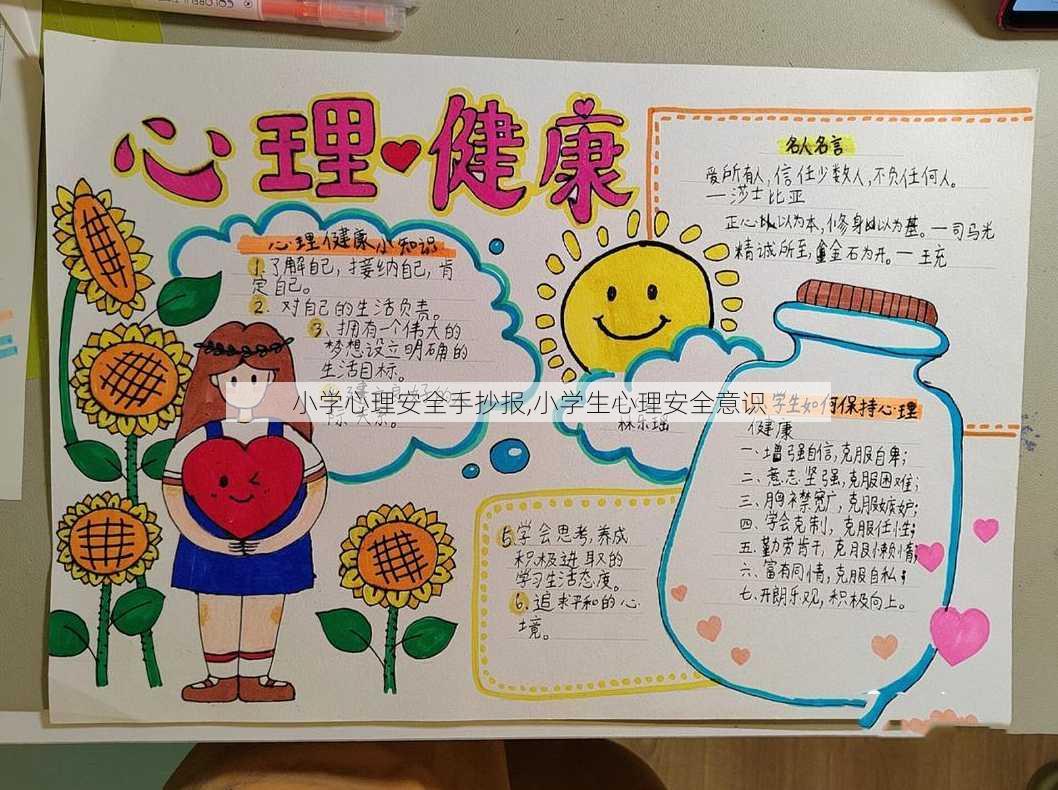 心理健康
名人名言
爱所有人,信任少数人,不负任何人。
—莎士比亚
正心以为本,修身以为基。—司马光
精诚所至,金石为开。—王充
心理健康小知识
1.了解自己,接纳自己,肯
定自己。
2. 对自己的生活负责。
3、拥有一个伟大的
梦想设立明确的
生活目标。
小学心理安全手抄报,小学生心理安全意识
5学会思考,养成
积极进取的
学习生活态度。
6.追求平和的心
境。
学生如何保持心理
健康
一、增强自信,克服自卑;
二、意志坚强,克服困难;
三、胸襟宽广,克服嫉妒;
四、学会克制,克服任性;
五、勤劳肯干,克服懒惰;
六、富有同情,克服自私;
七、开朗乐观,积极向上。